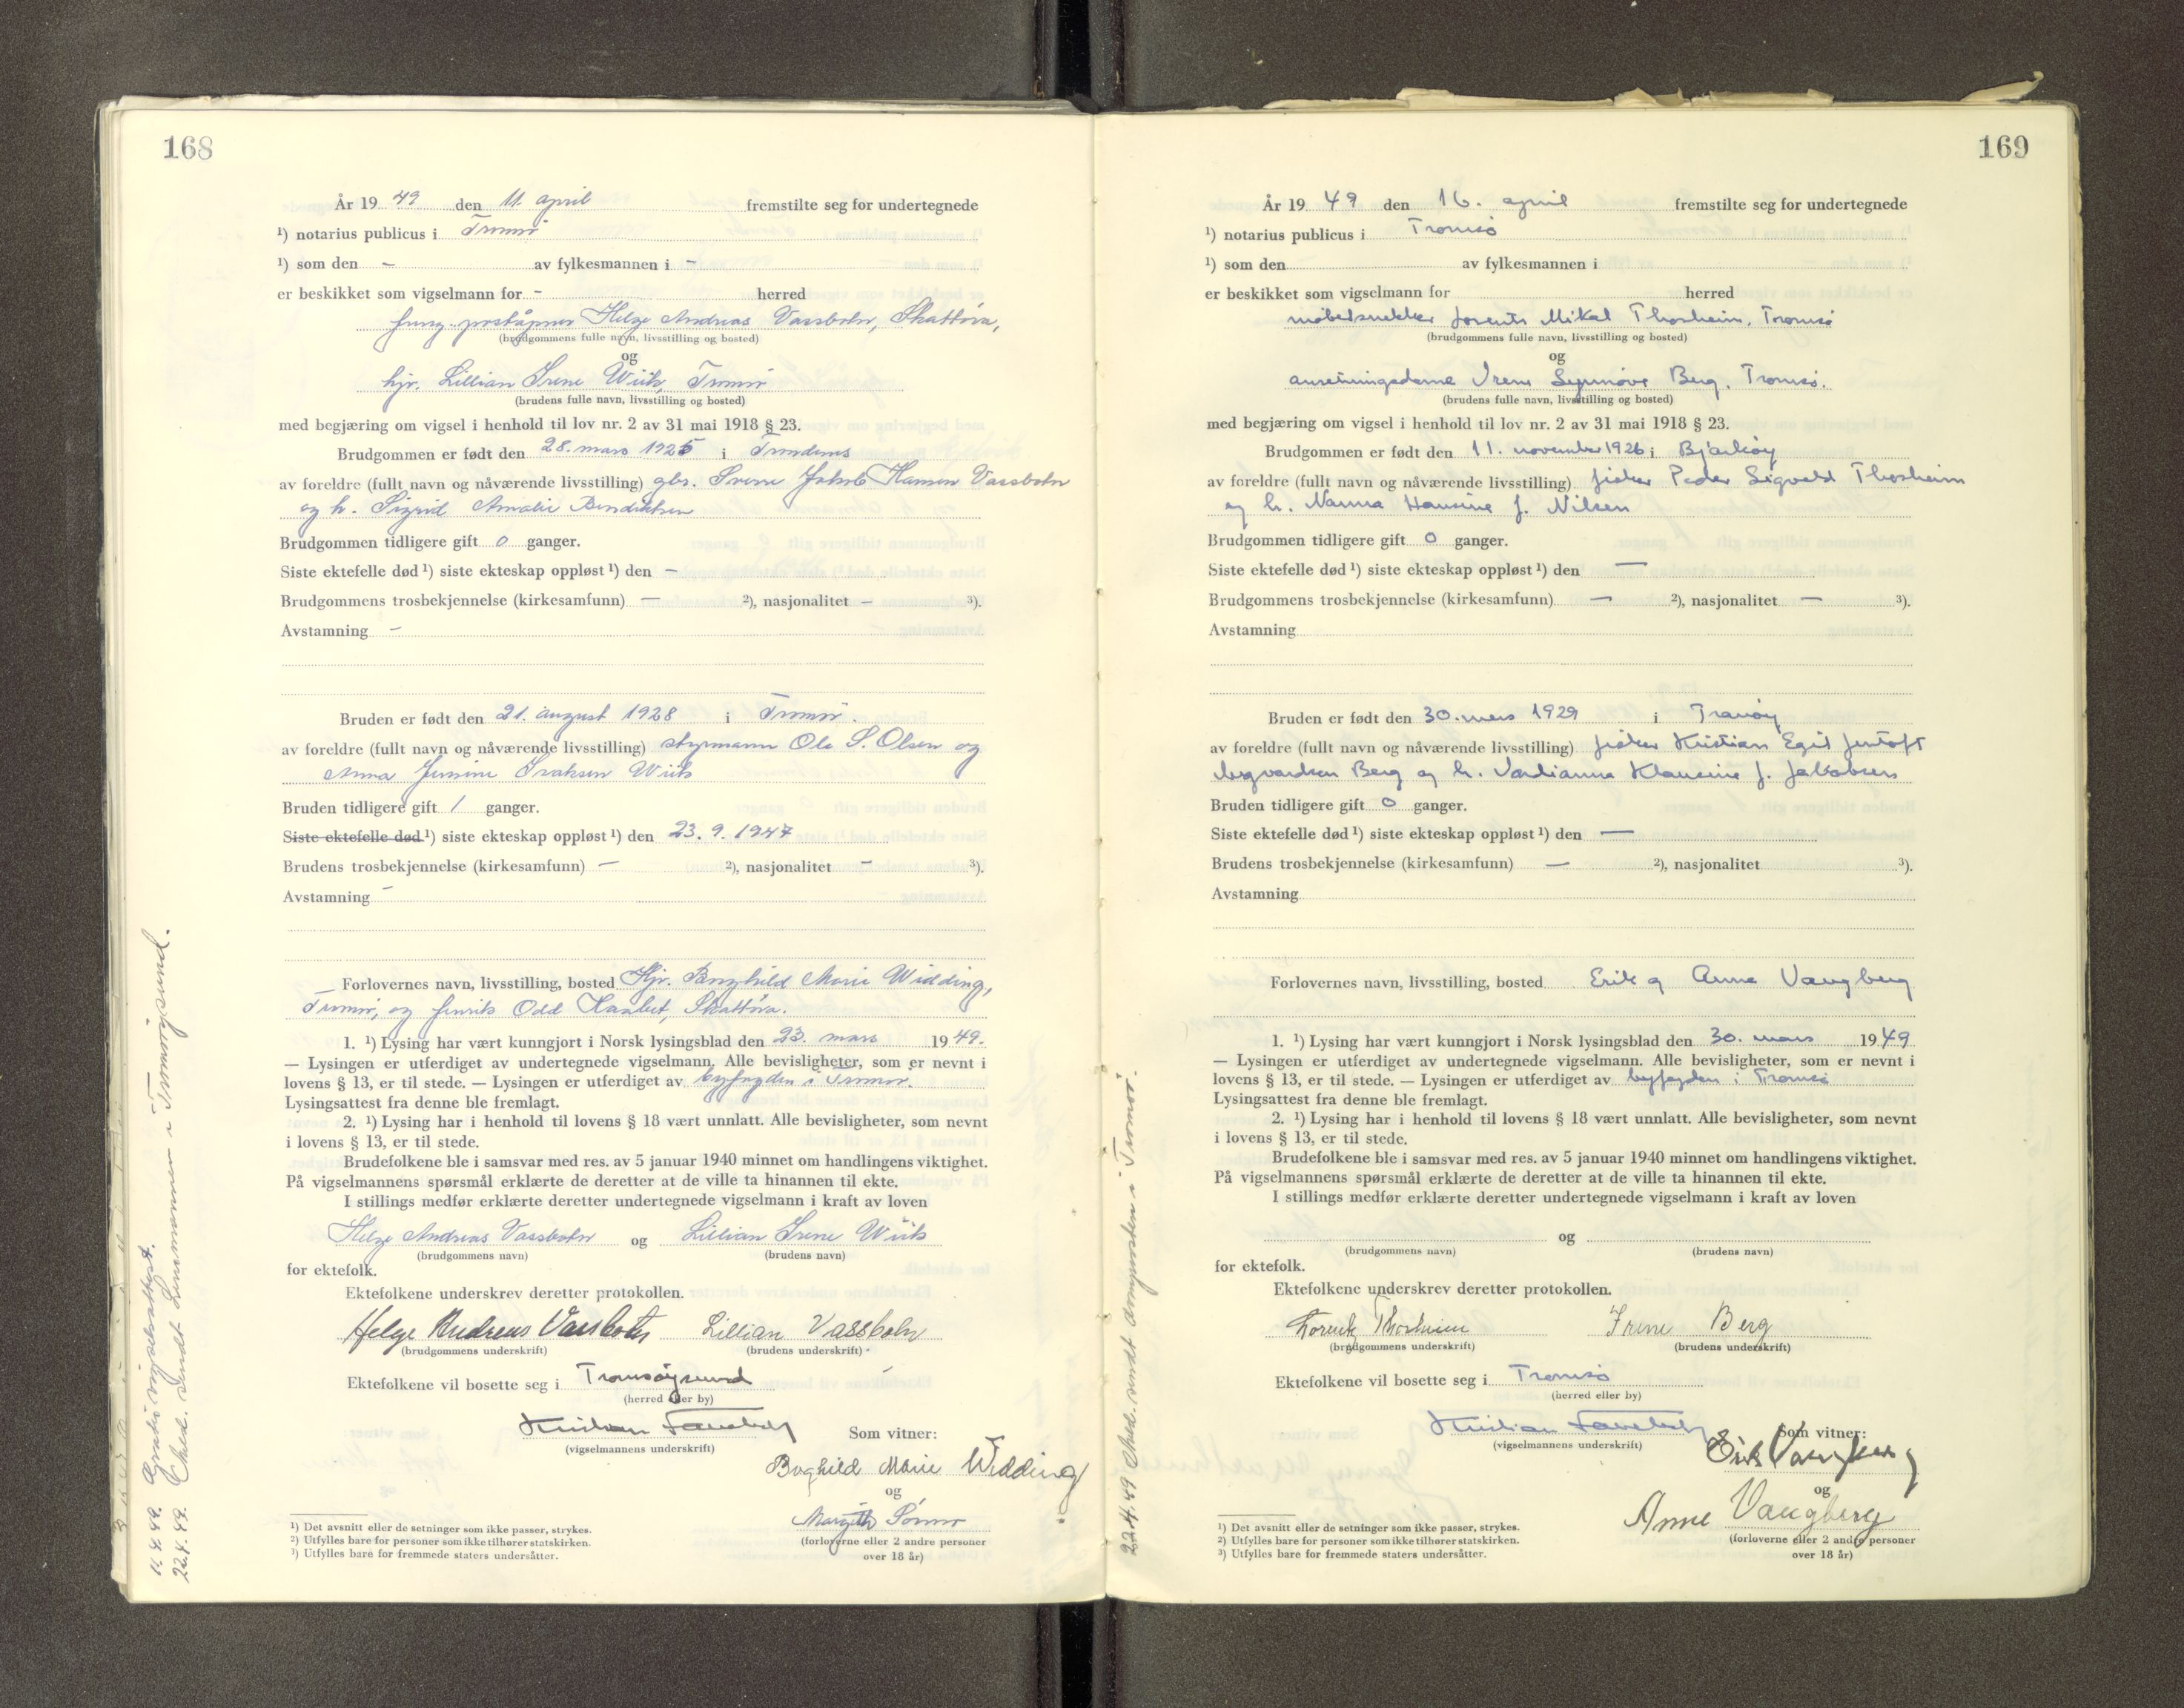 168
År 19 49 den 11. april fremstilte seg for undertegnede
¹) notarius publicus i Tromsø
¹) som den – av fylkesmannen i –
er beskikket som vigselmann for – herred
fung. poståpner Helge Andreas Vassbotn, Skattøra,
(brudgommens fulle navn, livsstilling og bosted)
og
hjr. Lillian Irene Wiik, Tromsø
(brudens fulle navn, livsstilling og bosted)
med begjæring om vigsel i henhold til lov nr. 2 av 31 mai 1918 § 23.
Brudgommen er født den 28. mars 1925 i Trondenes
av foreldre (fullt navn og nåværende livsstilling) gbr. Sverre Jakob Hansen Vassbotn
og h. Sigrid Amalie Bendiktsen
Brudgommen tidligere gift 0 ganger.
Siste ektefelle død ¹) siste ekteskap oppløst ¹) den –
Brudgommens trosbekjennelse (kirkesamfunn) – ²), nasjonalitet – ³).
Avstamning –
Bruden er født den 21. august 1928 i Tromsø.
av foreldre (fullt navn og nåværende livsstilling) styrmann Ole S. Olsen og
Anna Jensine Isaksen Wiik
Bruden tidligere gift 1 ganger.
Siste ektefelle død ¹) siste ekteskap oppløst ¹) den 23. 9. 1947
Brudens trosbekjennelse (kirkesamfunn) – ²), nasjonalitet – ³).
Avstamning –
Forlovernes navn, livsstilling, bosted Hjr. Borghild Marie Widding,
Tromsø, og Henrik Odd, Skattøra.
1. ¹) Lysing har vært kunngjort i Norsk lysingsblad den 23. mars 19 49.
— Lysingen er utferdiget av undertegnede vigselmann. Alle bevisligheter, som er nevnt i
lovens § 13, er til stede. — Lysingen er utferdiget av byfogden i Tromsø.
Lysingsattest fra denne ble fremlagt.
2. ¹) Lysing har i henhold til lovens § 18 vært unnlatt. Alle bevisligheter, som nevnt
i lovens § 13, er til stede.
Brudefolkene ble i samsvar med res. av 5 januar 1940 minnet om handlingens viktighet.
På vigselmannens spørsmål erklærte de deretter at de ville ta hinannen til ekte.
I stillings medfør erklærte deretter undertegnede vigselmann i kraft av loven
Helge Andreas Vassbotn og Lillian Irene Wiik
(brudgommens navn) (brudens navn)
for ektefolk.
Ektefolkene underskrev deretter protokollen.
Helge Andreas Vassbotn Lillian Vassbotn
(brudgommens underskrift) (brudens underskrift)
Ektefolkene vil bosette seg i Tromsøysund
(herred eller by)
Kristian
(vigselmannens underskrift) Som vitner:
Boghild Marie Widding
og
Margith
(forloverne eller 2 andre personer
over 18 år)
¹) Det avsnitt eller de setninger som ikke passer, strykes.
²) Utfylles bare for personer som ikke tilhører statskirken.
³) Utfylles bare for fremmede staters undersåtter.
11.4.49. Gratis vigselsattest.
22.4.49. Medd. sendt Lensmannen i Tromsøysund.
169
År 19 49 den 16. april fremstilte seg for undertegnede
¹) notarius publicus i Tromsø
¹) som den av fylkesmannen i
er beskikket som vigselmann for herred
møbelsnekker Lorentz Mikal Thorheim, Tromsø
(brudgommens fulle navn, livsstilling og bosted)
og
anretningsdame Irene Synnøve Berg, Tromsø.
(brudens fulle navn, livsstilling og bosted)
med begjæring om vigsel i henhold til lov nr. 2 av 31 mai 1918 § 23.
Brudgommen er født den 11. november 1926 i Bjarkøy
av foreldre (fullt navn og nåværende livsstilling) fisker Peder Sigvald Thorheim
og h. Nanna Hansine f. Nilsen
Brudgommen tidligere gift 0 ganger.
Siste ektefelle død ¹) siste ekteskap oppløst ¹) den —
Brudgommens trosbekjennelse (kirkesamfunn) — ²), nasjonalitet — ³).
Avstamning
Bruden er født den 30. mars 1929 i Tranøy
av foreldre (fullt navn og nåværende livsstilling) fisker Kristian Egil Jentoft
Berg og h. Klausine f. Jakobsen
Bruden tidligere gift 0 ganger.
Siste ektefelle død ¹) siste ekteskap oppløst ¹) den —
Brudens trosbekjennelse (kirkesamfunn) — ²), nasjonalitet ³).
Avstamning
Forlovernes navn, livsstilling, bosted Erik og Anne Vangberg
1. ¹) Lysing har vært kunngjort i Norsk lysingsblad den 30. mars 19 49
— Lysingen er utferdiget av undertegnede vigselmann. Alle bevisligheter, som er nevnt i
lovens § 13, er til stede. — Lysingen er utferdiget av byfogden i Tromsø
Lysingsattest fra denne ble fremlagt.
2. ¹) Lysing har i henhold til lovens § 18 vært unnlatt. Alle bevisligheter, som nevnt
i lovens § 13, er til stede.
Brudefolkene ble i samsvar med res. av 5 januar 1940 minnet om handlingens viktighet.
På vigselmannens spørsmål erklærte de deretter at de ville ta hinannen til ekte.
I stillings medfør erklærte deretter undertegnede vigselmann i kraft av loven
og
(brudgommens navn) (brudens navn)
for ektefolk.
Ektefolkene underskrev deretter protokollen.
Lorentz Thorheim Irene Berg
(brudgommens underskrift) (brudens underskrift)
Ektefolkene vil bosette seg i Tromsø
(herred eller by)
Kristian
(vigselmannens underskrift) Som vitner:
Erik Vangberg
og
Anne Vangberg
(forloverne eller 2 andre personer
over 18 år)
¹) Det avsnitt eller de setninger som ikke passer, strykes.
²) Utfylles bare for personer som ikke tilhører statskirken.
³) Utfylles bare for fremmede staters undersåtter.
22.4.49 Med. sendt i Tromsø.